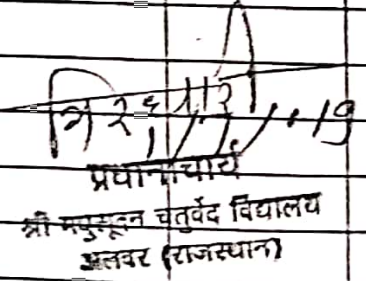 गिरधारी
प्रधानाचार्य
श्री मधुसूदन चतुर्वेद विद्यालय
अलवर (राजस्थान)